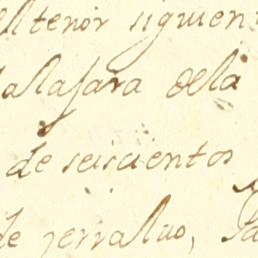 el tenor siguien
alajara della
de seiscientos
de zerraluo,